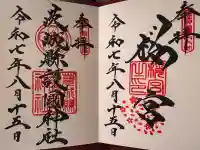 奉拝
宮
令和七年八月十五日
奉拝
茨城縣護國神社
令和七年八月十五日